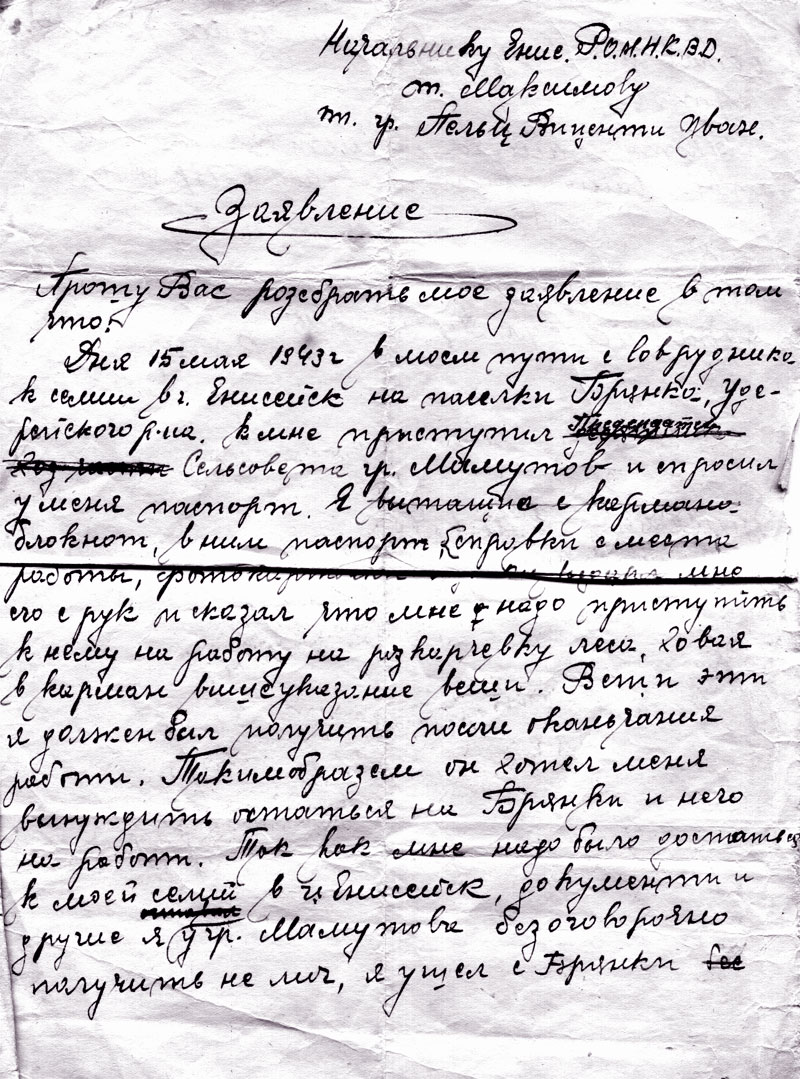 Начальнику Енис. Р.О.М.Н.К.В.Д.
т. Максимову
т. гр. Пельц Виценти Иван.
Заявление
Прошу Вас розебрать мое заявление в том
что:
Дня 15 мая 1943 г в моем пути с Соврудника
к семии в г. Енисейск на паселки Брянка, Уде-
рейского р-на. К мне приступил
Сельсовета гр. Мамутов и спросил
у меня паспорт. Я вытащив с кармана
блокнот, в ним паспорт, справки с места
работы, мне
его с рук и сказал что мне надо приступить
к нему на работу на розкарчевку леса, ховая
в карман вишеуказание вещи. Вещи эти
я должен был получить посли оканьчания
работи. Такимобразем он хотел меня
вынуждить остаться на Брянки и него
на работи. Так как мне надо было достаться
к моей семии в г. Енисейск, документи и
другие я у гр. Мамутова безоговорочно
получить не мич, я ушел с Брянки